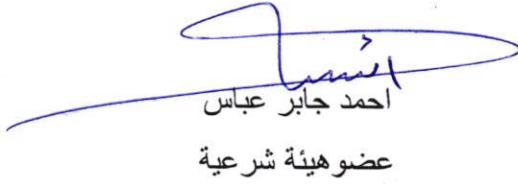 احمد جابر عباس
عضو هيئة شرعية